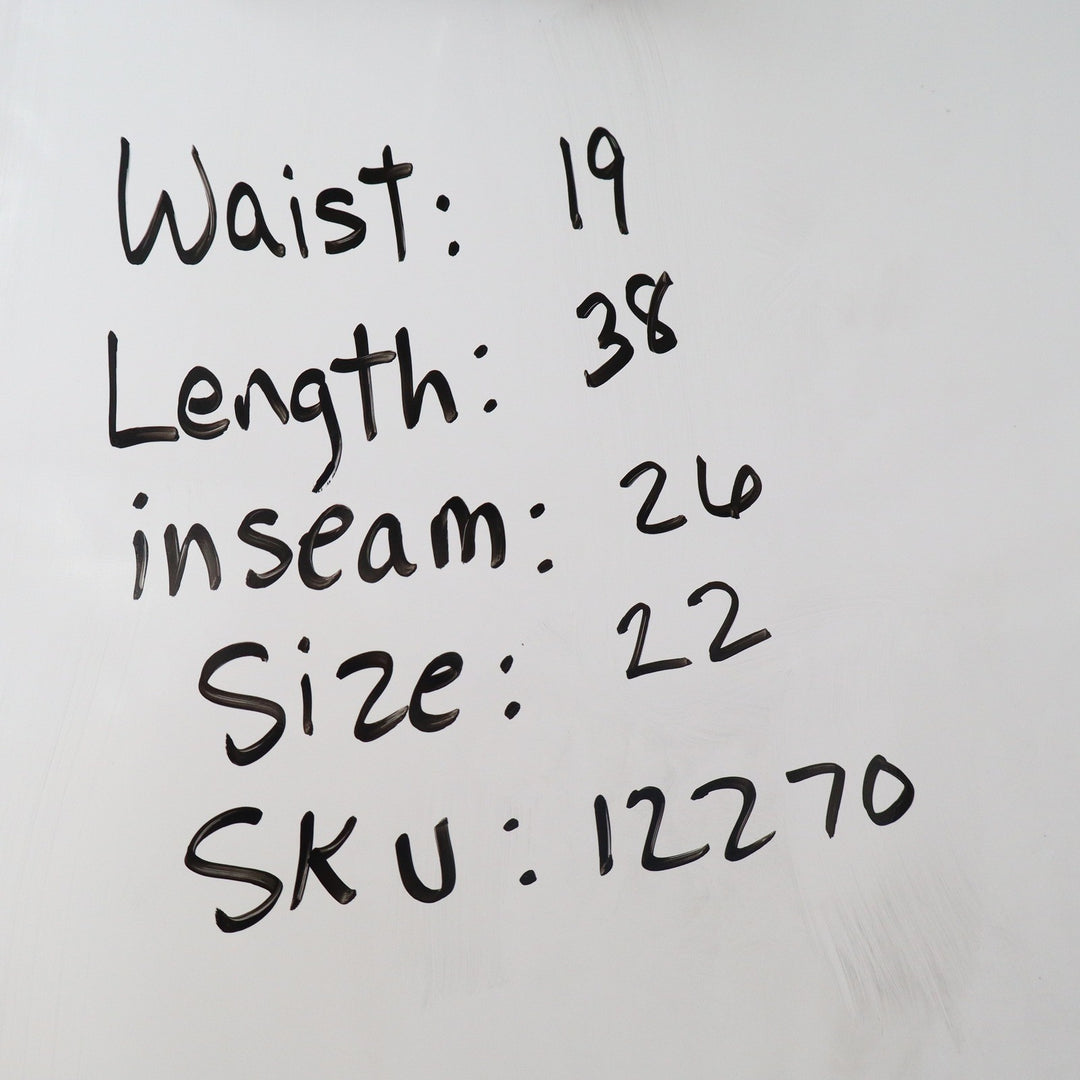 Waist: 19
Length: 38
inseam: 26
Size: 22
SKU: 12270